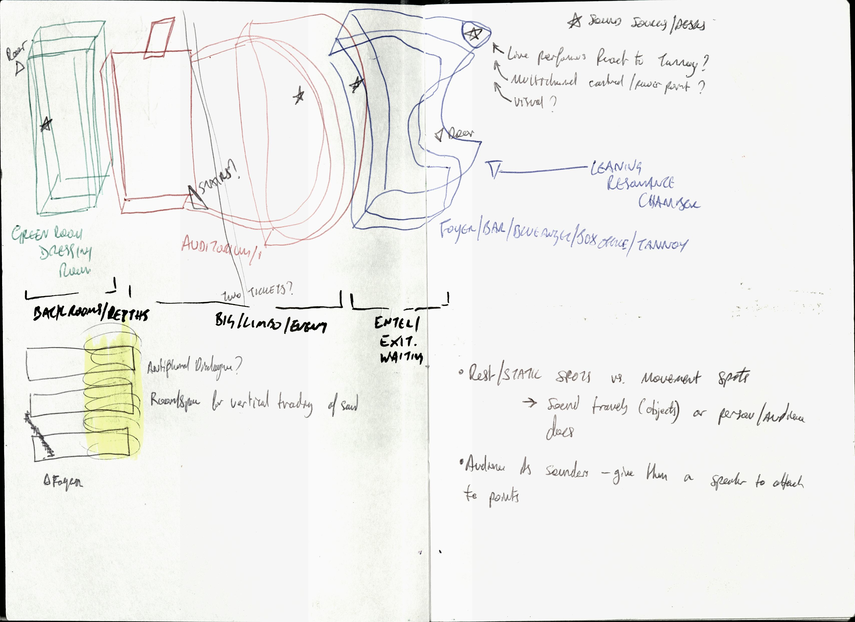 ☆ Sound Sources/Desks
Live performers React to Tannoy?
Multichannel control/power point?
Visual?
Door
Door
STAIRS?
LEANING
RESONANCE
CHAMBER
GREEN ROOM
DRESSING
ROOM
AUDITORIUM/1
FOYER/BAR/BLUE ROOM/BOX OFFICE/TANNOY
TWO TICKETS?
BACKROOMS/DEPTHS
BIG/LIMBO/EVENT
ENTER/
EXIT.
WAITING
Antiphonal Dialogue?
Room/Space for vertical trading of sound
Foyer
• Rest/STATIC SPOTS vs. Movement spots
→ Sound travels (objects) or person/Audience
does
• Audience As sounders – give them a speaker to attach
to points